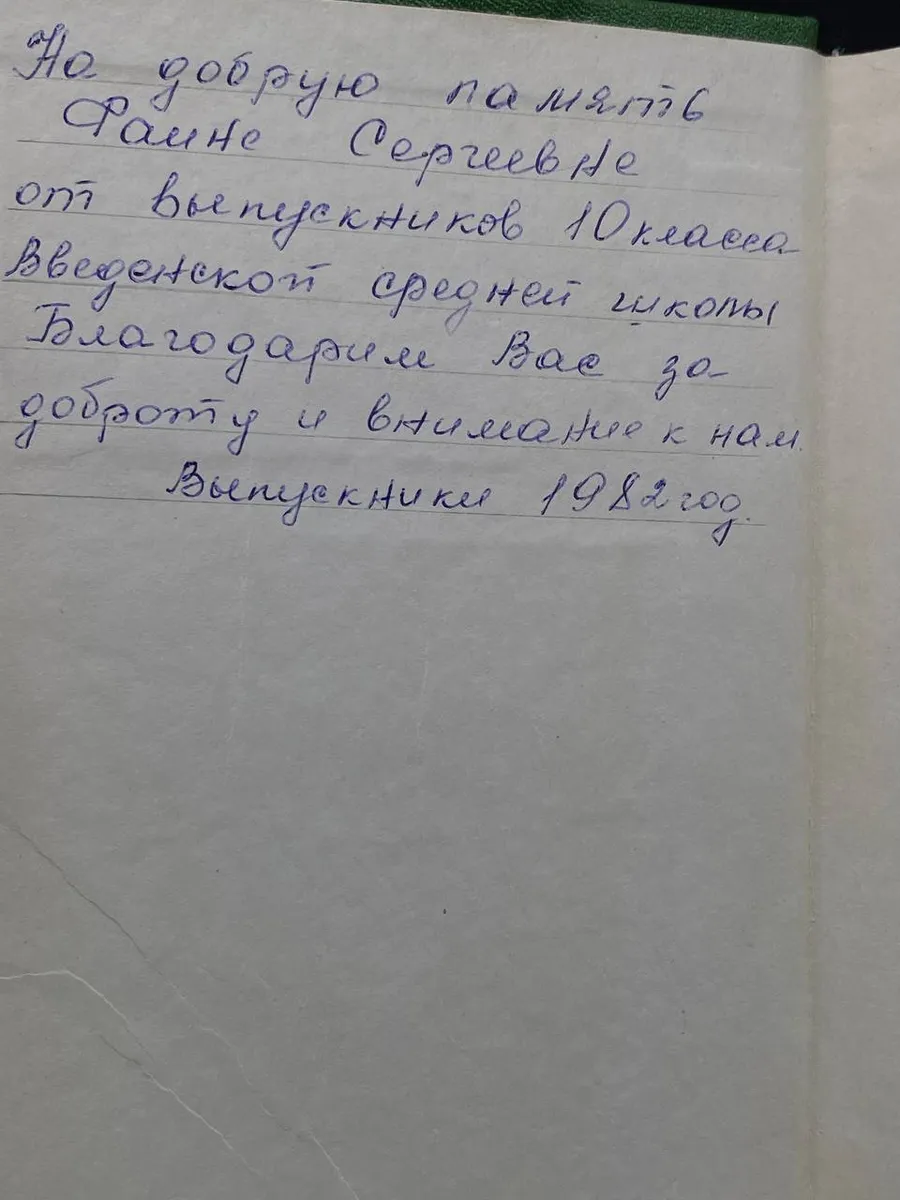 На добрую память
Фаине Сергеевне
от выпускников 10 класса
Введенской средней школы
Благодарим Вас за
доброту и внимание к нам.
Выпускники 1982 год.